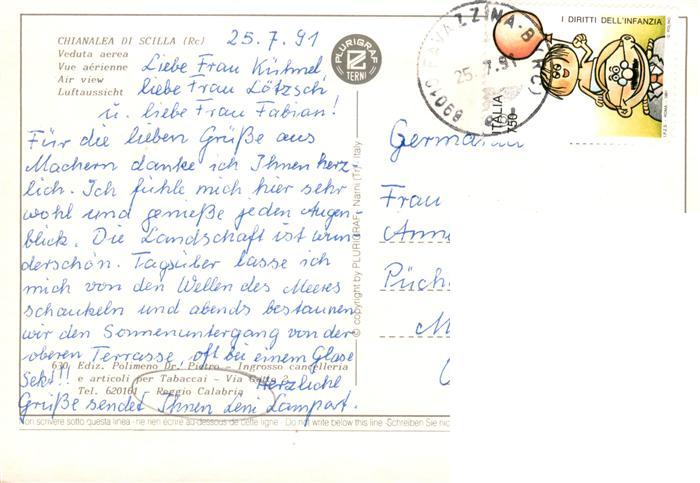 CHIANALEA DI SCILLA (Rc)
Veduta aerea
Vue aérienne
Air view
Luftaussicht
PLURIGRAF
TERNI
25.7.91
Liebe Frau Kühmel,
liebe Frau Lötzsch
u. liebe Frau Fabian!
Für die lieben Grüße aus
Machern danke ich Ihnen herz-
lich. Ich fühle mich hier sehr
wohl und genieße jeden Augen-
blick. Die Landschaft ist wun
derschön. Tagsüber lasse ich
mich von den Wellen des Meeres
schaukeln und abends bestaunen
wir den Sonnenuntergang von der
oberen Terrasse, oft bei einem Glase
Sekt!!! Herzliche
Grüße sendet Ihnen Leni Lampart.
630 Ediz. Polimeno Dr. Pietro - Ingrosso cancelleria
e articoli per Tabaccai - Via
Tel. 620161 - Reggio Calabria
Non scrivere sotto questa linea - ne rien écrire au-dessous de cette ligne - Do not write below this line - Schreiben Sie nic
© copyright by PLURIGRAF - Narni (Tr) - Italy
25.7.91
I DIRITTI DELL'INFANZIA
ITALIA
750
Frau
Püch
M